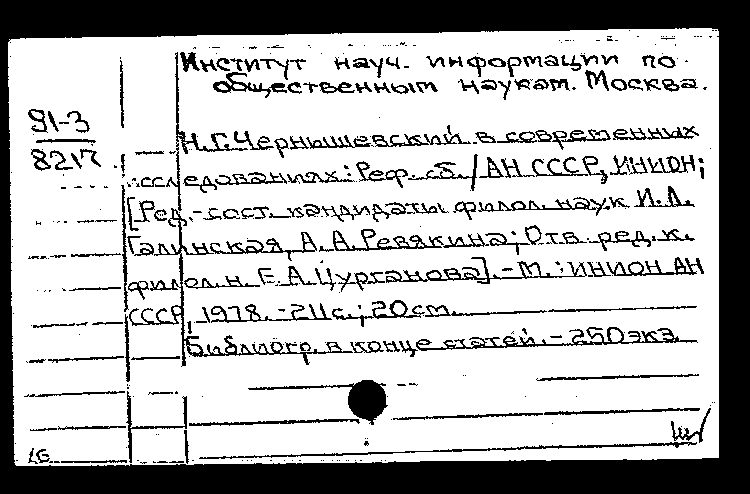 Институт науч. информации по
общественным наукам. Москва.
91-3
8217
Н.Г.Чернышевский в современных
исследованиях: Реф. сб. / АН СССР, ИНИОН;
[Ред.-сост. кандидаты филол. наук И.Л.
Галинская, А.А.Ревякина; Отв. ред. к.
филол. н. Е.А.Цурганова]. - М.: ИНИОН АН
СССР, 1978. - 211с.; 20см.
Библиогр. в конце статей. - 250экз.